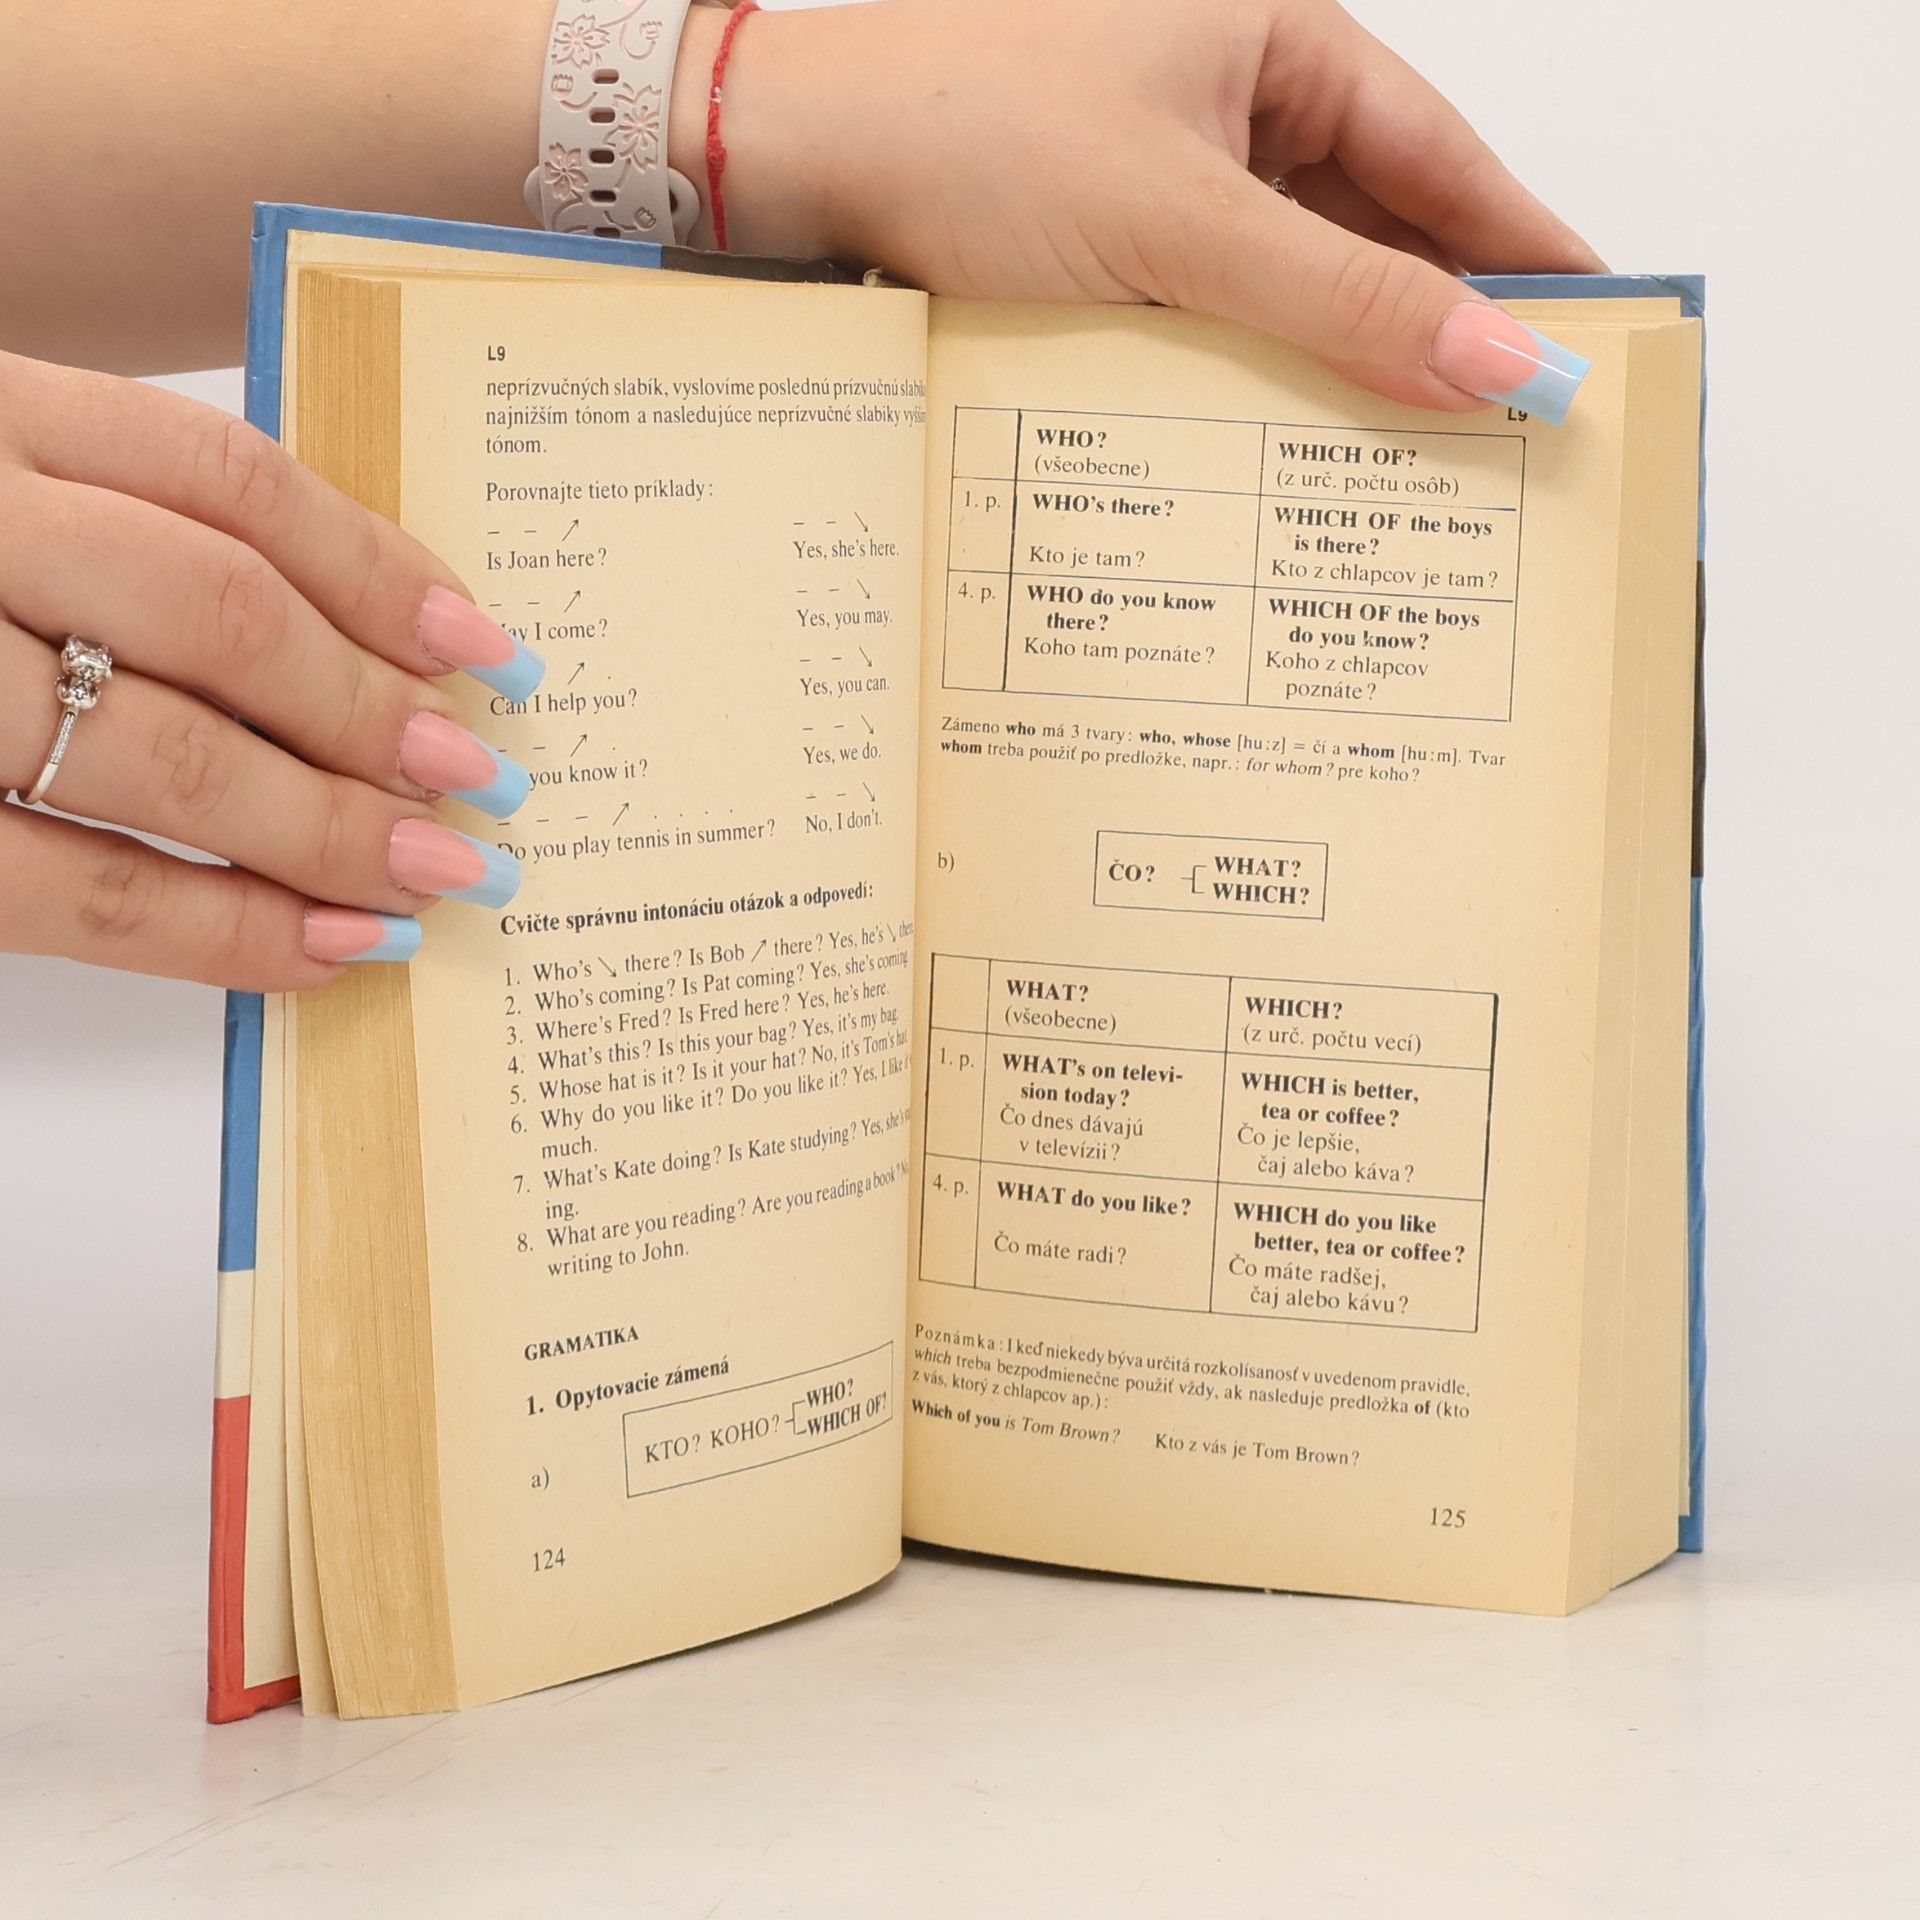 L9
neprízvučných slabík, vyslovíme poslednú prízvučnú
najnižším tónom a nasledujúce neprízvučné slabiky
tónom.
Porovnajte tieto príklady:
– – ↗ – – ↘
Is Joan here? Yes, she's here.
– – ↗ – – ↘
I come? Yes, you may.
↗ . – – ↘
Can I help you? Yes, you can.
– – ↗ . – – ↘
you know it? Yes, we do.
– – – ↗ . . . . – – ↘
Do you play tennis in summer? No, I don't.
Cvičte správnu intonáciu otázok a odpovedí:
1. Who's ↘ there? Is Bob ↗ there? Yes, he's ↘
2. Who's coming? Is Pat coming? Yes, she's coming.
3. Where's Fred? Is Fred here? Yes, he's here.
4. What's this? Is this your bag? Yes, it's my bag.
5. Whose hat is it? Is it your hat? No, it's Tom's hat.
6. Why do you like it? Do you like it? Yes, I like
much.
7. What's Kate doing? Is Kate studying? Yes, she's
ing.
8. What are you reading? Are you reading a book?
writing to John.
GRAMATIKA
1. Opytovacie zámená
a) KTO? KOHO? WHO?
WHICH OF?
124
L9
WHO? WHICH OF?
(všeobecne) (z urč. počtu osôb)
1. p. WHO's there? WHICH OF the boys
is there?
Kto je tam? Kto z chlapcov je tam?
4. p. WHO do you know WHICH OF the boys
there? do you know?
Koho tam poznáte? Koho z chlapcov
poznáte?
Zámeno who má 3 tvary: who, whose [hu:z] = čí a whom [hu:m]. Tvar
whom treba použiť po predložke, napr.: for whom? pre koho?
b) ČO? WHAT?
WHICH?
WHAT? WHICH?
(všeobecne) (z urč. počtu vecí)
1. p. WHAT's on televi- WHICH is better,
sion today? tea or coffee?
Čo dnes dávajú Čo je lepšie,
v televízii? čaj alebo káva?
4. p. WHAT do you like? WHICH do you like
better, tea or coffee?
Čo máte radi? Čo máte radšej,
čaj alebo kávu?
Poznámka: I keď niekedy býva určitá rozkolísanosť v uvedenom pravidle,
which treba bezpodmienečne použiť vždy, ak nasleduje predložka of (kto
z vás, ktorý z chlapcov ap.):
Which of you is Tom Brown? Kto z vás je Tom Brown?
125